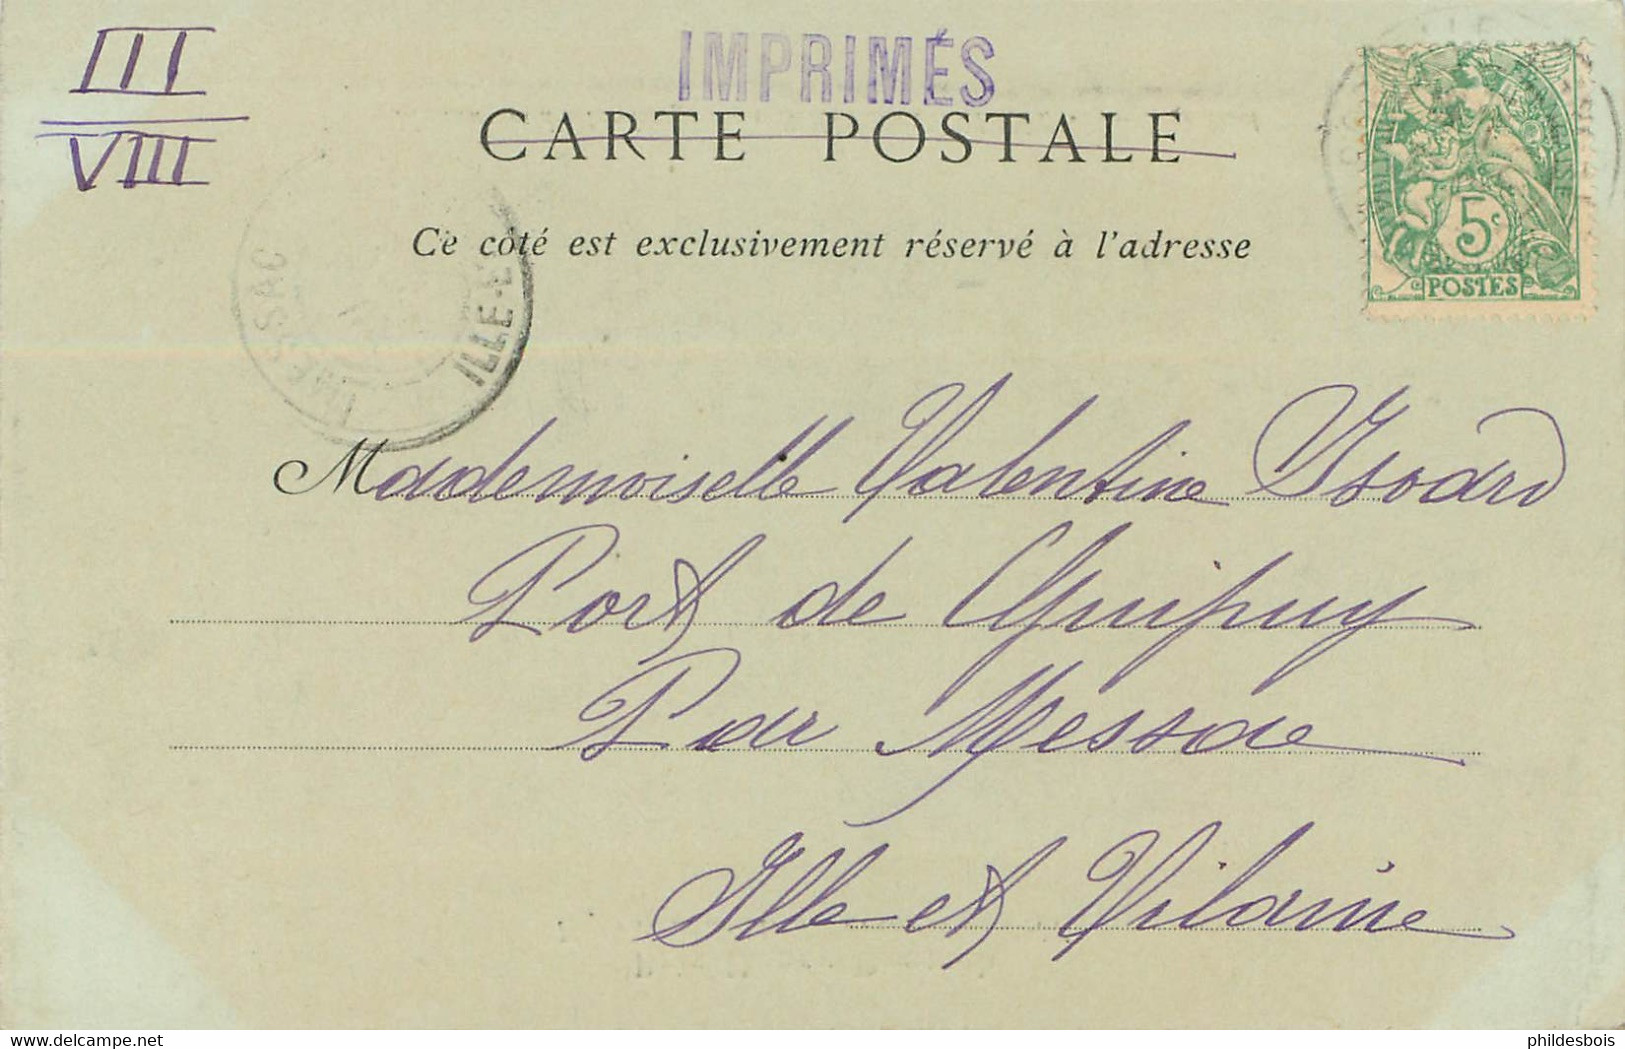 III
VIII
IMPRIMÉS
CARTE POSTALE
Ce côté est exclusivement réservé à l'adresse
5c
POSTES
MESSAC
ILLE-&
Mademoiselle Valentine Isoard
Port de Guipry
Par Messac
Ille et Vilaine
delcampe.net
phildesbois